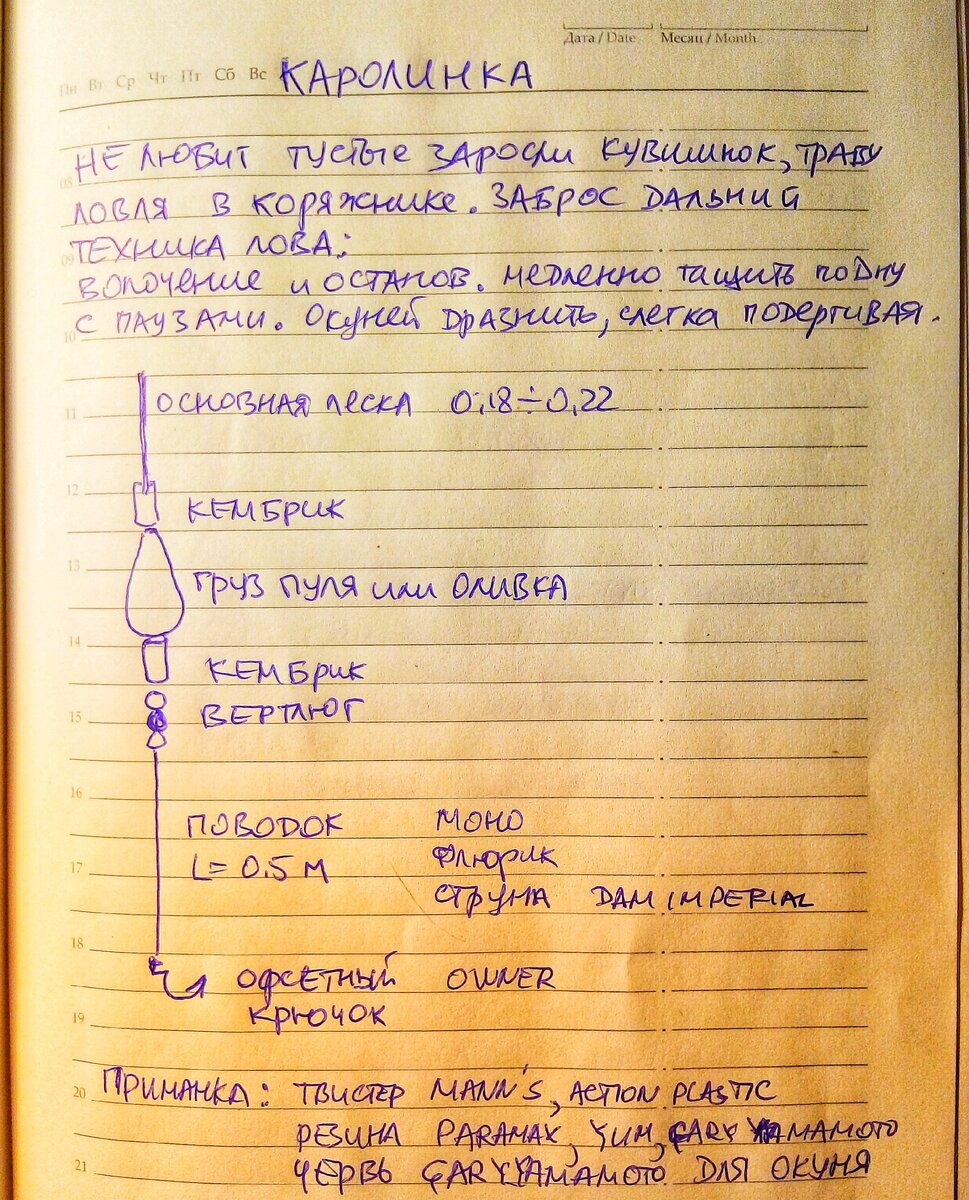 Дата / Date Месяц / Month
Пн Вт Ср Чт Пт Сб Вс КАРОЛИНКА
НЕ ЛЮБИТ ГУСТЫЕ ЗАРОСЛИ КУВШИНОК, ТРАВУ
08
ЛОВЛЯ В КОРЯЖНИКЕ. ЗАБРОС ДАЛЬНИЙ
ТЕХНИКА ЛОВА:
09
ВОЛОЧЕНИЕ И ОСТАНОВ. МЕДЛЕННО ТАЩИТЬ ПО ДНУ
С ПАУЗАМИ. ОКУНЕЙ ДРАЗНИТЬ, СЛЕГКА ПОДЕРГИВАЯ.
10
11 ОСНОВНАЯ ЛЕСКА 0,18÷0,22
12 КЕМБРИК
13 ГРУЗ ПУЛЯ ИЛИ ОЛИВКА
14
КЕМБРИК
15 ВЕРТЛЮГ
16
ПОВОДОК МОНО
17 L= 0.5 М ФЛЮРИК
СТРУНА DAM IMPERIAL
18
ОФСЕТНЫЙ OWNER
19 КРЮЧОК
20 ПРИМАНКА: ТВИСТЕР MANN'S, ACTION PLASTIC
РЕЗИНА PARAMAX, YUM, GARY YAMAMOTO
21 ЧЕРВЬ GARY YAMAMOTO ДЛЯ ОКУНЯ